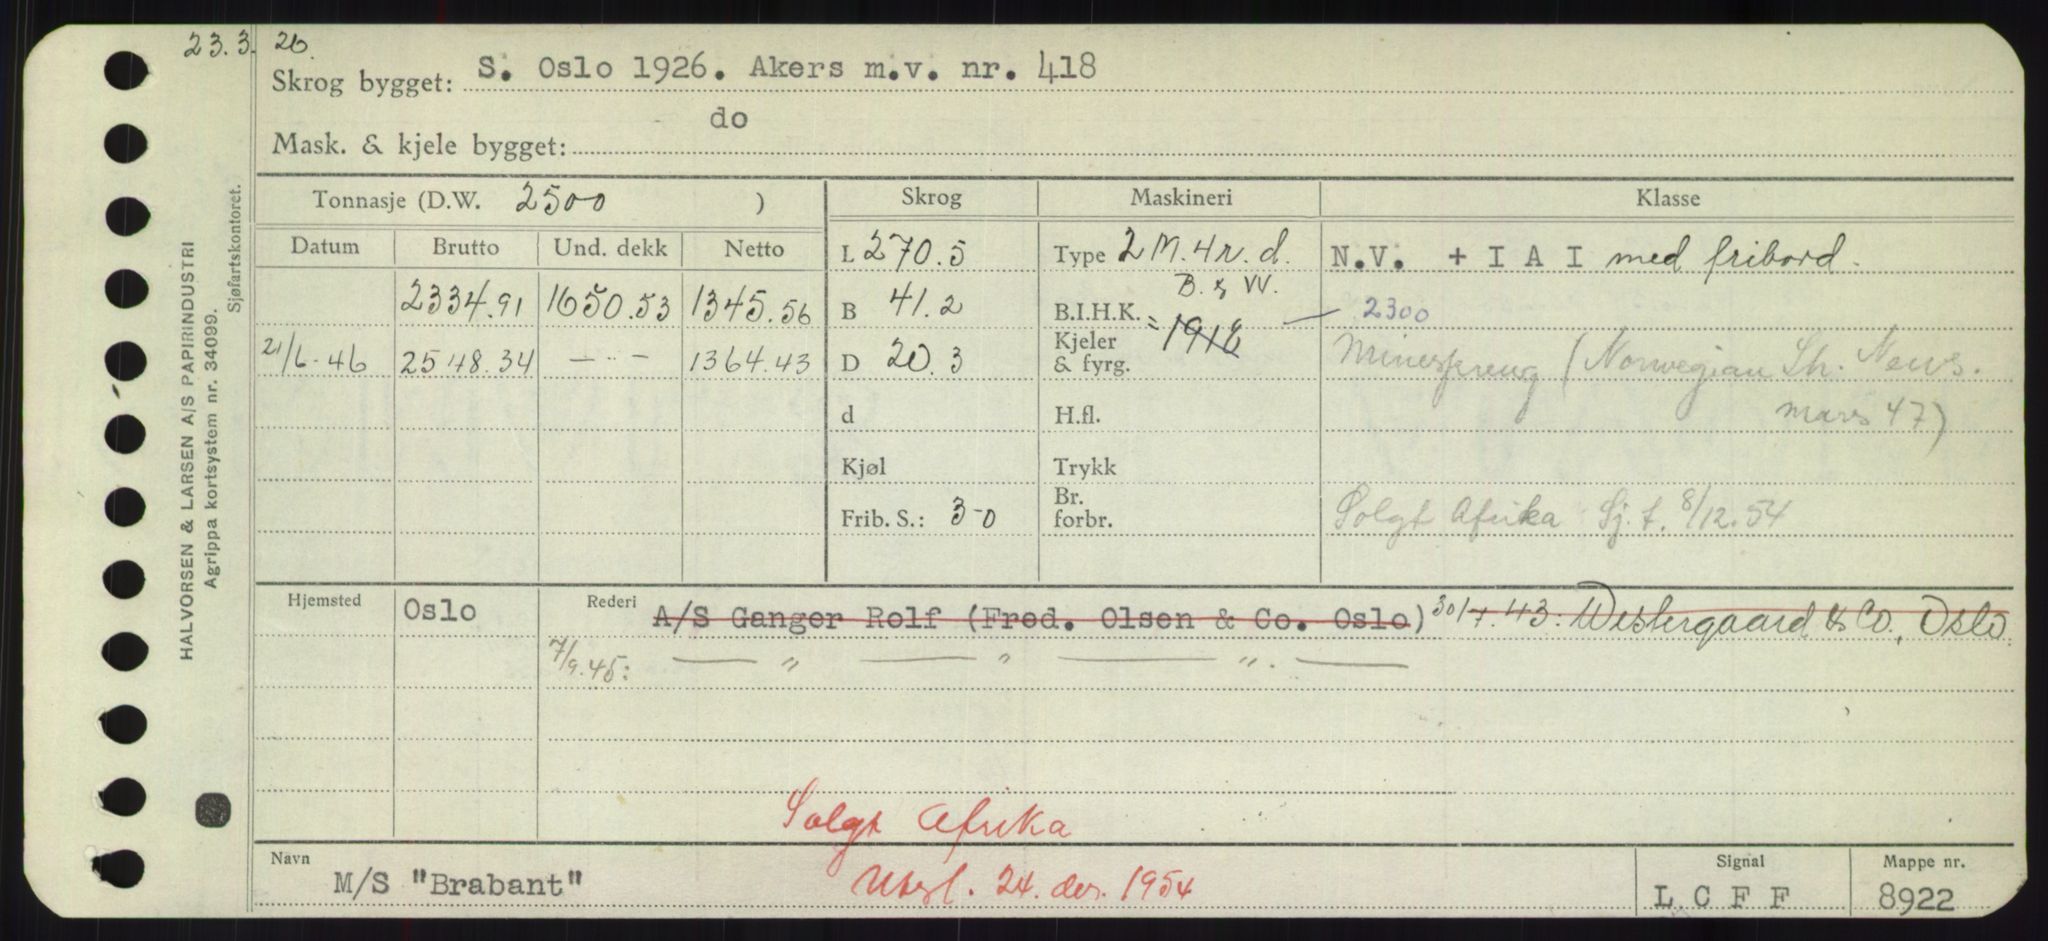 23.3. 26
Skrog bygget: S. Oslo 1926. Akers m.v. nr. 418
do
Mask. & kjele bygget:
HALVORSEN & LARSEN A/S PAPIRINDUSTRI
Agrippa kortsystem nr. 34099.
Sjøfartskontoret.
Tonnasje (D.W. 2500 )
Skrog
Maskineri
Klasse
Datum Brutto Und. dekk Netto
2334.91 1650.53 1345.56
21/6-46 2548.34 — ·· — 1364.43
L 270.5
B 41.2
D 20.3
d
Kjøl
Frib. S.: 3-0
Type 2 M. 4 v. d.
B. & W.
B.I.H.K. = 1918 — 2300
Kjeler
& fyrg.
H.fl.
Trykk
Br.
forbr.
N.V. + I A I med fribord.
Minespreng (Norwegian Sh. News.
mars 47)
Solgt Afrika Sj.t. 8/12.54
Hjemsted Oslo
Rederi A/S Ganger Rolf (Fred. Olsen & Co. Oslo) 30/7.43: Westergaard & Co., Oslo
7/9.45: — " — " — ". —
Solgt Afrika
Navn M/S "Brabant"
Utsl. 24. des. 1954
Signal
L C F F
Mappe nr.
8922